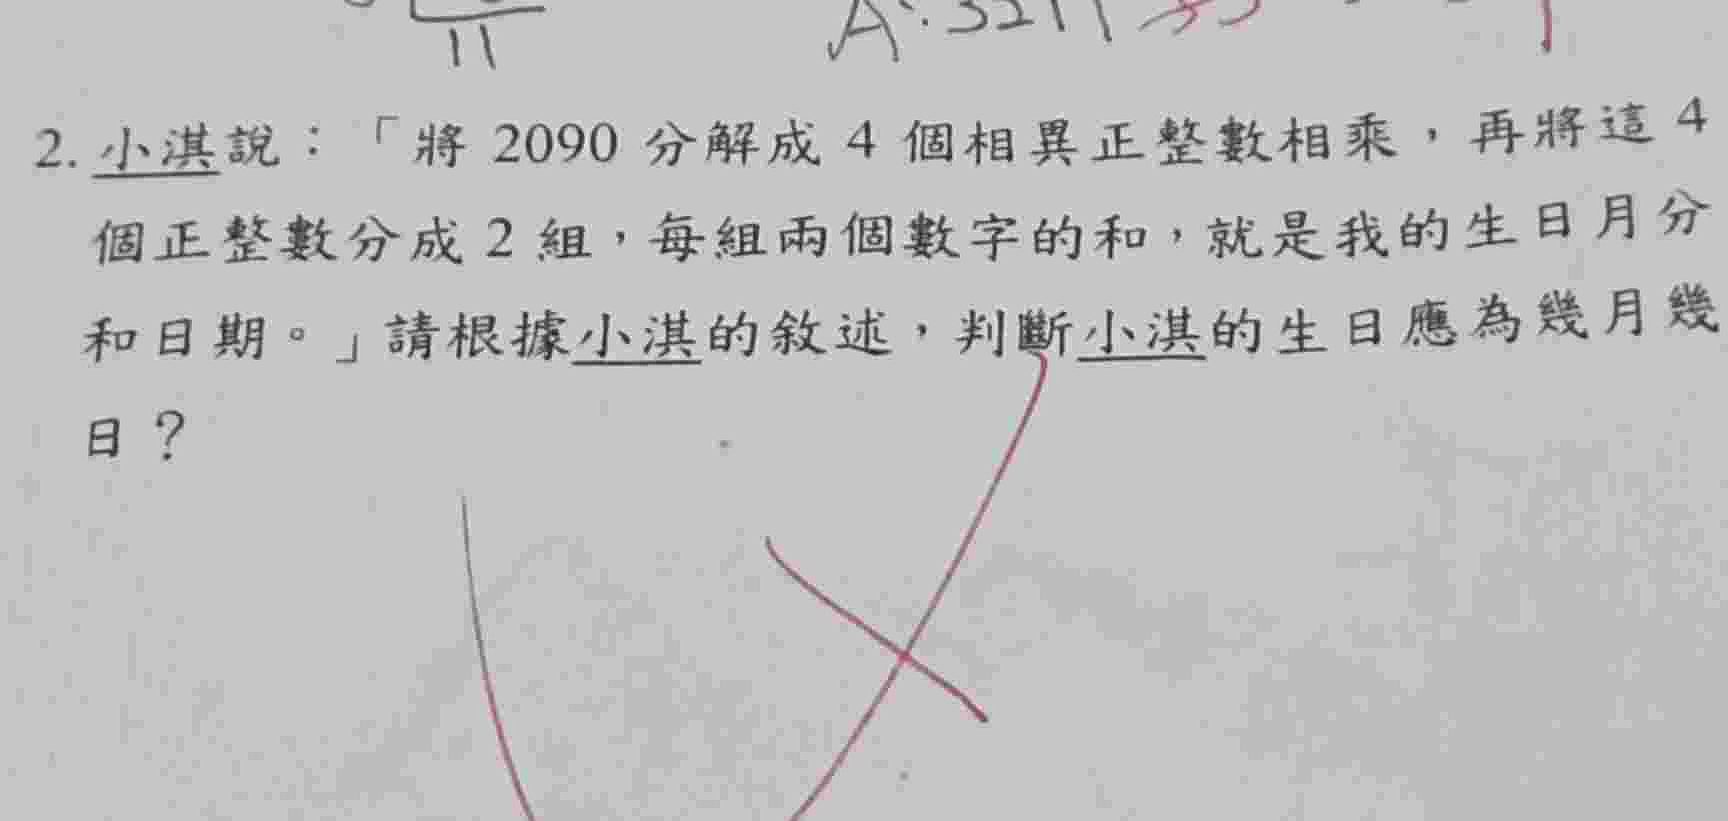 11
A:3211
2. 小淇說：「將 2090 分解成 4 個相異正整數相乘，再將這 4
個正整數分成 2 組，每組兩個數字的和，就是我的生日月分
和日期。」請根據小淇的敘述，判斷小淇的生日應為幾月幾
日？